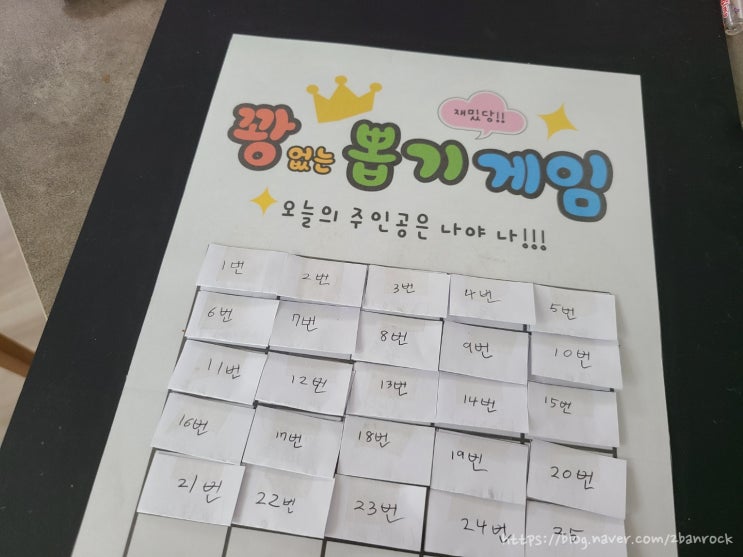 재밌당!!
꽝 없는 뽑기 게임
오늘의 주인공은 나야 나!!!
1번 2번 3번 4번 5번
6번 7번 8번 9번 10번
11번 12번 13번 14번 15번
16번 17번 18번 19번 20번
21번 22번 23번 24번 25
https://blog.naver.com/2banrock